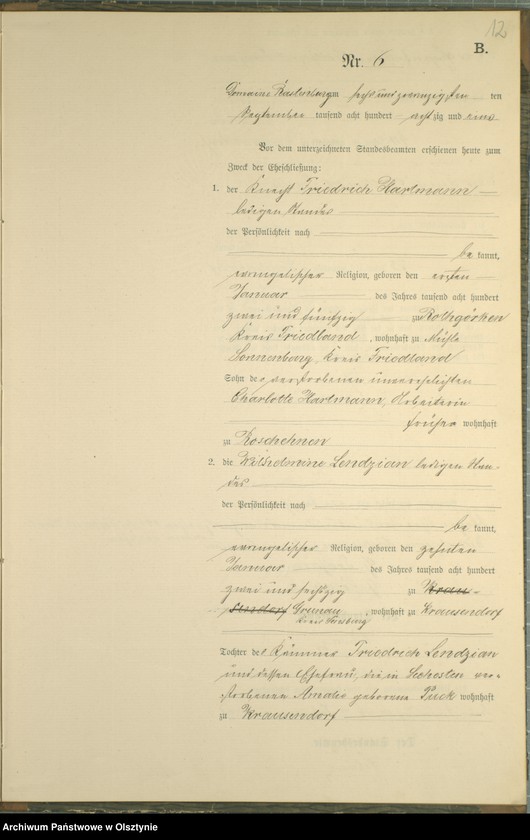 12
B.
Nr. 6
Domaine Rastenburg am sechs und zwanzigsten ten
September tausend acht hundert achtzig und eins
Vor dem unterzeichneten Standesbeamten erschienen heute zum
Zweck der Eheschließung:
1. der Knecht Friedrich Hartmann
ledigen Standes
der Persönlichkeit nach
be kannt,
evangelischer Religion, geboren den ersten
Januar des Jahres tausend acht hundert
zwei und fünfzig zu Rothgörken
Kreis Friedland, wohnhaft zu Mühle
Sonnenburg, Kreis Friedland
Sohn der verstorbenen unverehelichten
Charlotte Hartmann, Arbeiterin
früher wohnhaft
zu Koschehnen
2. die Wilhelmine Lendzian ledigen Stan-
des
der Persönlichkeit nach
be kannt,
evangelischer Religion, geboren den zehnten
Januar des Jahres tausend acht hundert
zwei und sechszig zu Krau-
sendorf Grunau, wohnhaft zu Krausendorf
Kreis Sensburg
Tochter des Kämmer Friedrich Lendzian
und dessen Ehefrau, die in Sechosten ver-
storbenen Amalie geborene Puck wohnhaft
zu Krausendorf
Archiwum Państwowe w Olsztynie